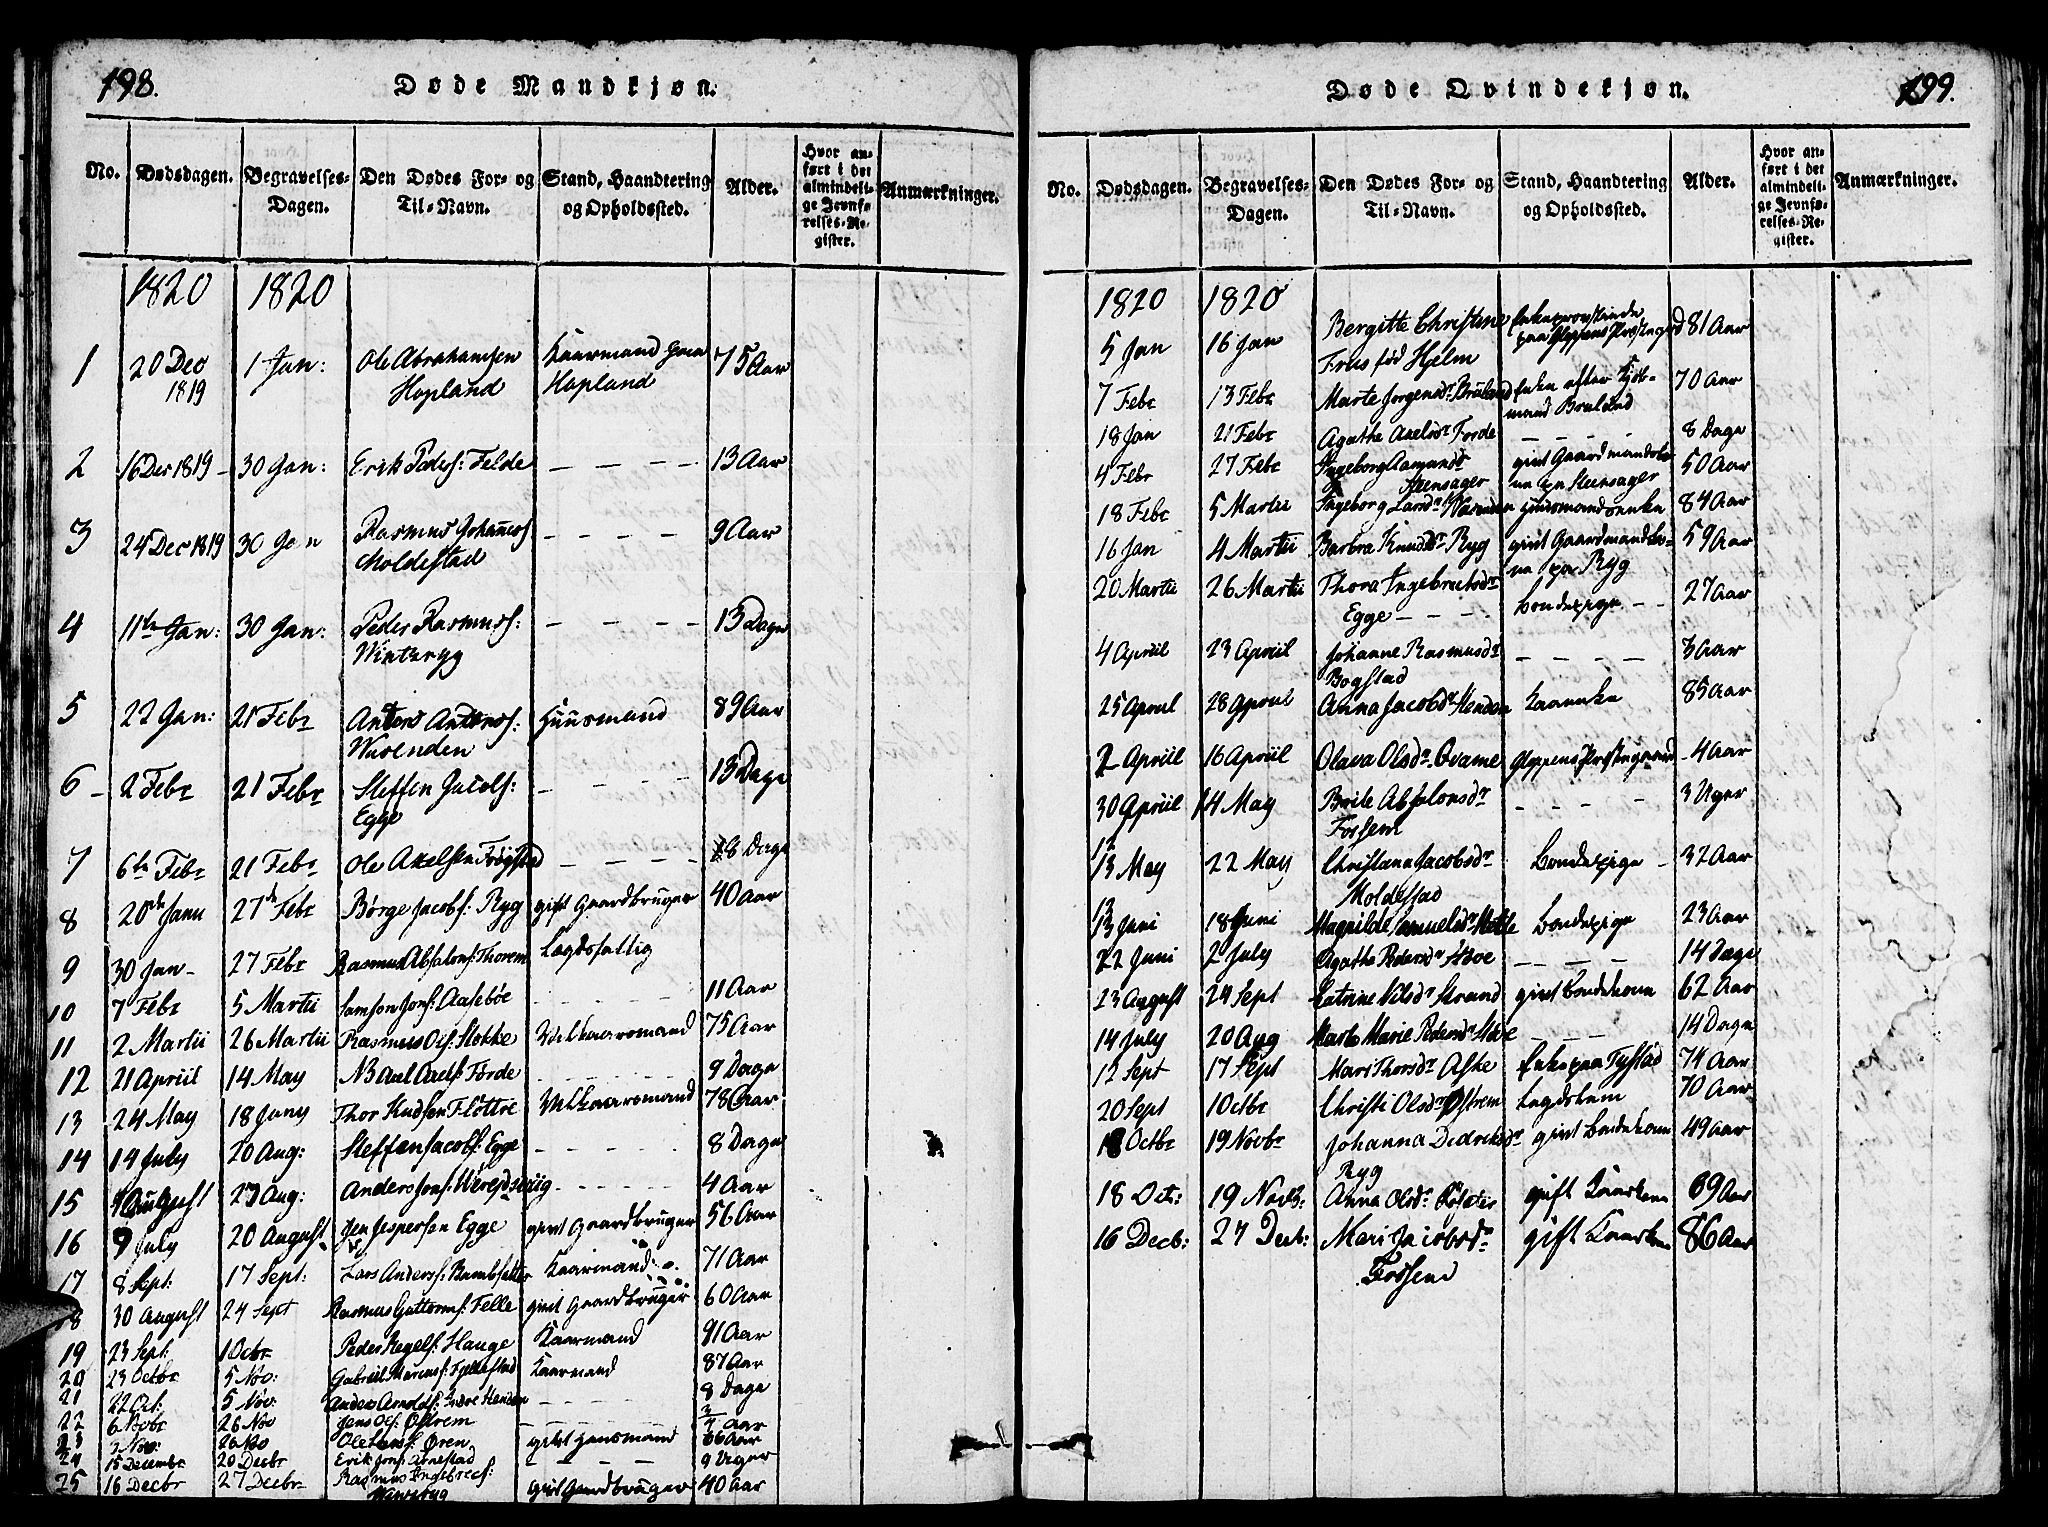 198.
Døde Mandkjøn.
No. Dødsdagen. Begravelses-Dagen. Den Dødes For- og Til-Navn. Stand, Haandtering og Opholdssted. Alder. Hvor anført i det almindelige Jevnførelses-Register. Anmærkninger.
1820 1820
1 20 Dec 1819 1 Jan: Ole Abrahamsen Hopland Kaarmand paa Hopland 75 Aar
2 16 Dec 1819 - 30 Jan: Erik Peders: Felde - - - - 13 Aar
3 24 Dec 1819 30 Jan Rasmus Johannes Moldestad - - - - 9 Aar
4 11te Jan: 30 Jan: Peder Rasmuss: Winteryg - - - - 13 Dage
5 22 Jan: 21 Febr Anders Anderss: Huusmand 89 Aar
6 - 2 Febr 21 Febr Steffen Jacobs: Egge - - - - 13 Dage
7 6te Febr 21 Febr Ole Axelsen - - - - 8 Dage
8 20de Janu 27de Febr Børge Jacobs: Ryg gift Gaardbruger 40 Aar
9 30 Jan - 27 Febr Rasmus Absalons: Thorem Lægdsfattig
10 7 Febr 5 Martii Samson Jons: Aasebøe - - - - 11 Aar
11 2 Martii 26 Martii Rasmus Ols: Stokke Vilkaarsmand 75 Aar
12 21 Apriil 14 May NB Axel Axels: Førde - - - - 9 Dage
13 24 May 18 Juny Thor Knudsen Fløttre Vilkaarsmand 78 Aar
14 14 July 20 Aug: Steffen Jacobs: Egge - - - - 8 Dage
15 4 August 27 Aug: Anders Jons: - - - - 4 Aar
16 9 July 20 August Jespersen Egge gift Gaardbruger 56 Aar
17 8 Sept: 17 Sept: Lars Anderss: Kaarmand 71 Aar
18 30 August 24 Sept Rasmus Guttorms: Felle gift Gaardbruger 60 Aar
19 23 Sept: 1 Octr Peder Hauge Kaarmand 91 Aar
20 23 Octbr 5 Nov: Gabriel Kaarmand 87 Aar
21 22 Oct: 5 Nov: Anders Arnolds: Henden - - - - 8 Dage
22 6 Novbr 26 Nov Jens Ols: Østrem - - - - Aar
23 Nov: 26 Nov Ole Lars: Øren gift Huusmand 66 Aar
24 15 Decembr 20 Decbr Erik Jons: Arnestad - - - 9 Uger
25 16 Decbr 27 Decbr Rasmus Ingebrets: gift Gaardbruger 40 Aar
199.
Døde Qvindekjøn.
No. Dødsdagen. Begravelses-Dagen. Den Dødes For- og Til-Navn. Stand, Haandtering og Opholdssted. Alder. Hvor anført i det almindelige Jevnførelses-Register. Anmærkninger.
1820 1820
5 Jan 16 Jan Bergitte Christine Friis fød Hjelm paa Gloppens Præstegrd 81 Aar
7 Febr 13 Febr Marte Jorgensdr Bruland Enke efter Bruland 70 Aar
18 Jan 21 Febr Agathe Axelsdr Forde - - - - 8 Dage
4 Febr 27 Febr Ingeborg Aamundsdr Steensager gift Gaardmandskone paa Steensager 50 Aar
18 Febr 5 Martii Ingeborg Larsdr Huusmandsenke 84 Aar
16 Jan 4 Martii Barbra Knudsdr Ryg gift Gaardmandskone paa Ryg 59 Aar
20 Martii 26 Martii Thora Ingebretsdr Egge - - - Bondepige - - 27 Aar
4 Apriil 23 Apriil Johanne Rasmusdr Bogstad - - - - 3 Aar
25 Apriil 28 Apriil Anna Jacobsdr Henden 85 Aar
2 Apriil 16 Apriil Olava Olsdr Qvame Gloppens Præstegaard - 4 Aar
30 Apriil 14 May Brite Absolonsdr Fossem - - - - 3 Uger
13 May 22 May Christiana Jacobsdr Moldestad Bondepige - 32 Aar
13 Juni 18 Juni Magnilde Samuelsdr Bondepige 23 Aar
22 Juni 2 July Agathe Pedersdr - - - - 14 Dage
23 August 24 Sept Catrine Nilsdr Strand gift Bondekone 62 Aar
14 July 20 Aug Marte Marie Pedersdr - - - 14 Dage
12 Sept 17 Sept Mari Thorsdr Aske Enke paa Tystad 74 Aar
20 Sept 1 Octbr Christi Olsdr Østrem Lægdslem 70 Aar
18 Octbr 19 Novbr Johanna Didriksdr Ryg gift Bondekone 49 Aar
18 Oct: 19 Novb: Anna Olsdr gift Kaarkone 69 Aar
16 Decb: 27 Decb: Mari Jacobsdr Fossem gift Kaarkone 86 Aar